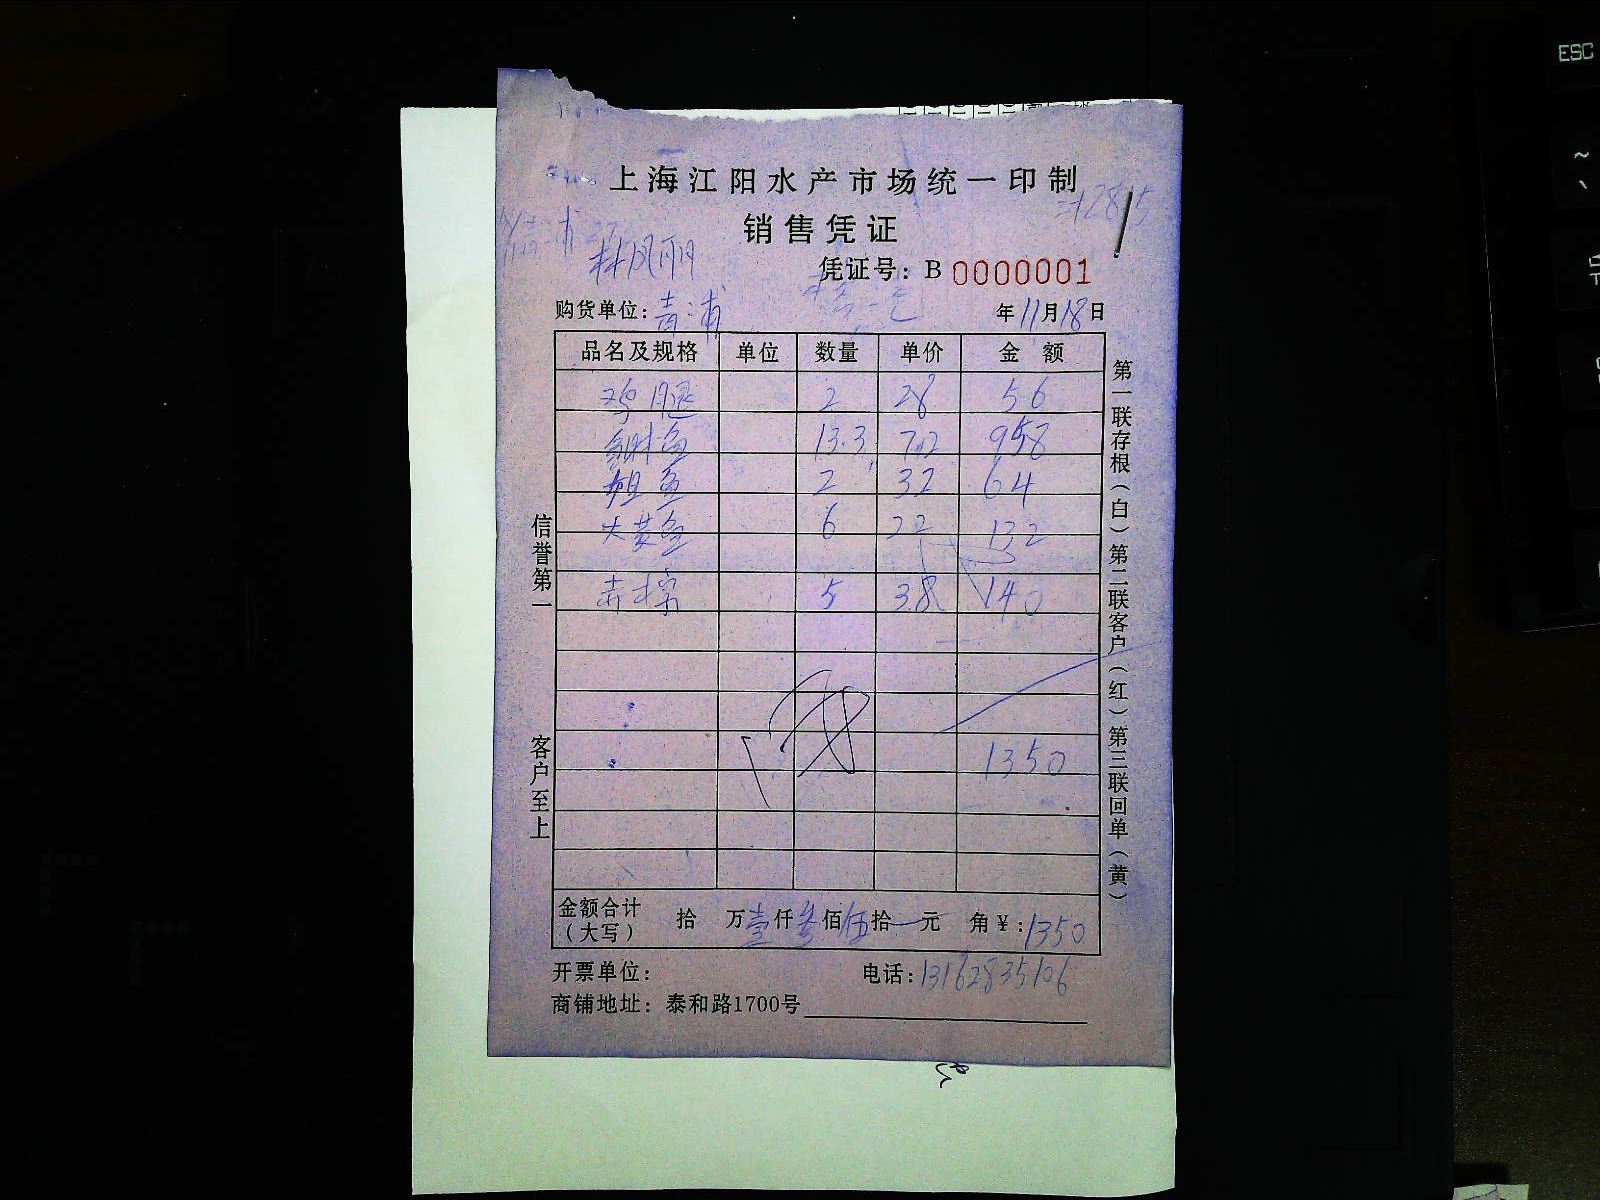 上海江阳水产市场统一印制
销售凭证
林凤丽
凭证号：B 0000001
购货单位：青浦
年11月18日
品名及规格 单位 数量 单价 金额
鸡腿 2 28 56
鱼 13.3 72 958
鱼 2 32 64
大黄鱼 6 22 132
5 38 140
1350
金额合计（大写） 拾 万壹仟叁佰伍拾 元 角￥：1350
开票单位：
电话：13162835106
商铺地址：泰和路1700号
信誉第一
客户至上
第一联存根（白）第二联客户（红）第三联回单（黄）
ESC